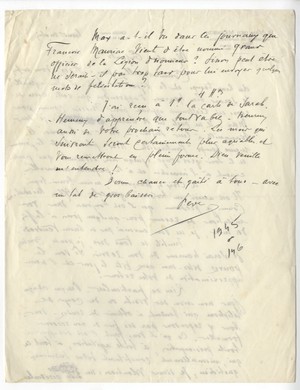 Max a-t-il vu dans les journaux que
François Mauriac vient d'être nommé grand
officier de la Légion d'honneur ? Sans doute
ne serait-il pas trop tard pour lui envoyer quelques
mots de félicitations.
J'ai reçu la carte de Sarah.
Heureux d'apprendre que tout va bien, heureux
aussi de votre prochain retour. Les mois qui
viendront seront certainement plus agréables et
vous remettront en pleine forme. Dieu veuille
m'entendre !
Bonne chance et gaîté à tous - avec
un tas de gros baisers
Père
1945
146